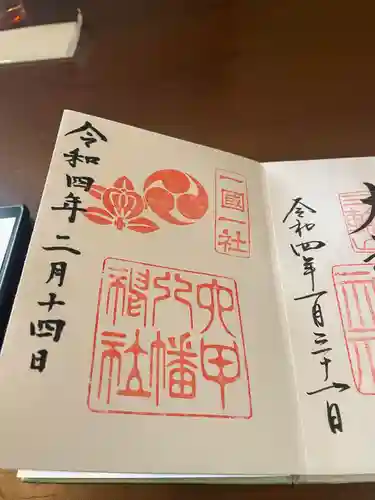 令和四年二月十四日
一國一社
六甲
八幡
神社
令和四年一月三十一日